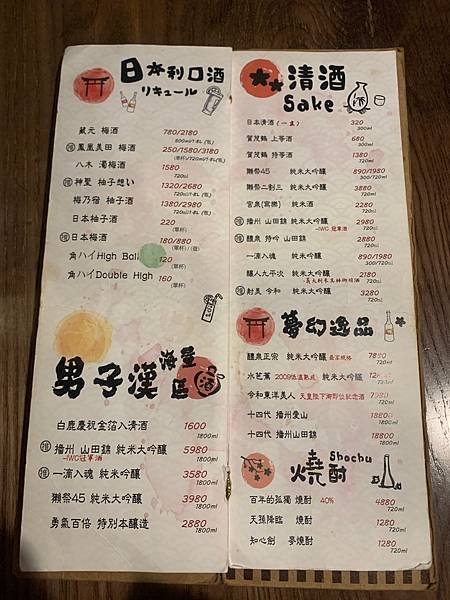 日本利口酒
リキュール
蔵元 梅酒 780/2180
800ml/1.8L(瓶)
推 鳳凰美田 梅酒 250/1580/3180
(單杯)/720ml/1.8L(瓶)
八木 濁梅酒 1580
720ml
推 神聖 柚子想い 1320/2680
720ml/1.8L(瓶)
梅乃宿 柚子酒 1380/2980
720ml/1.8L(瓶)
日本柚子酒 220
(單杯)
推 日本梅酒 180/880
(單杯)/(壺)
角ハイHigh Ball 120
(單杯)
角ハイDouble High 160
(單杯)
男子漢海量區
酒
白鹿慶祝金箔入清酒 1600
1800ml
推 播州 山田錦 純米大吟釀 5980
-IWC冠軍酒 1800ml
推 一滴入魂 純米吟釀 3580
1800ml
獺祭45 純米大吟釀 3980
1800ml
勇氣百倍 特別本釀造 2880
1800ml
清酒
Sake
日本清酒(一合) 320
300ml
賀茂鶴 上等酒 680
300ml
賀茂鶴 特等酒 1380
720ml
獺祭45 純米大吟釀 890/1980
300ml/720ml
獺祭二割三 純米大吟釀 3880
720ml
宮泉(寫樂) 純米酒 2280
720ml
推 播州 山田錦 純米大吟釀 2980
-IWC冠軍酒 720ml
推 醴泉 特吟 山田錦 2880
720ml
一滴入魂 純米吟釀 890/1980
300/720ml
釀人九平次 純米大吟釀 2180
720ml
推 射美 令和 純米大吟釀 3280
720ml
夢幻逸品
醴泉正宗 純米大吟釀 7880
720ml
水芭蕉 2009低溫熟成 純米大吟釀
720ml
令和東洋美人 天皇陛下御即位紀念酒 7980
720ml
十四代 播州愛山 18800
720ml
十四代 播州山田錦 18800
720ml
燒酎
Shochu
百年的孤獨 燒酎 40% 4880
720ml
天孫降臨 燒酎 1280
720ml
知心劍 麥燒酎 1280
720ml